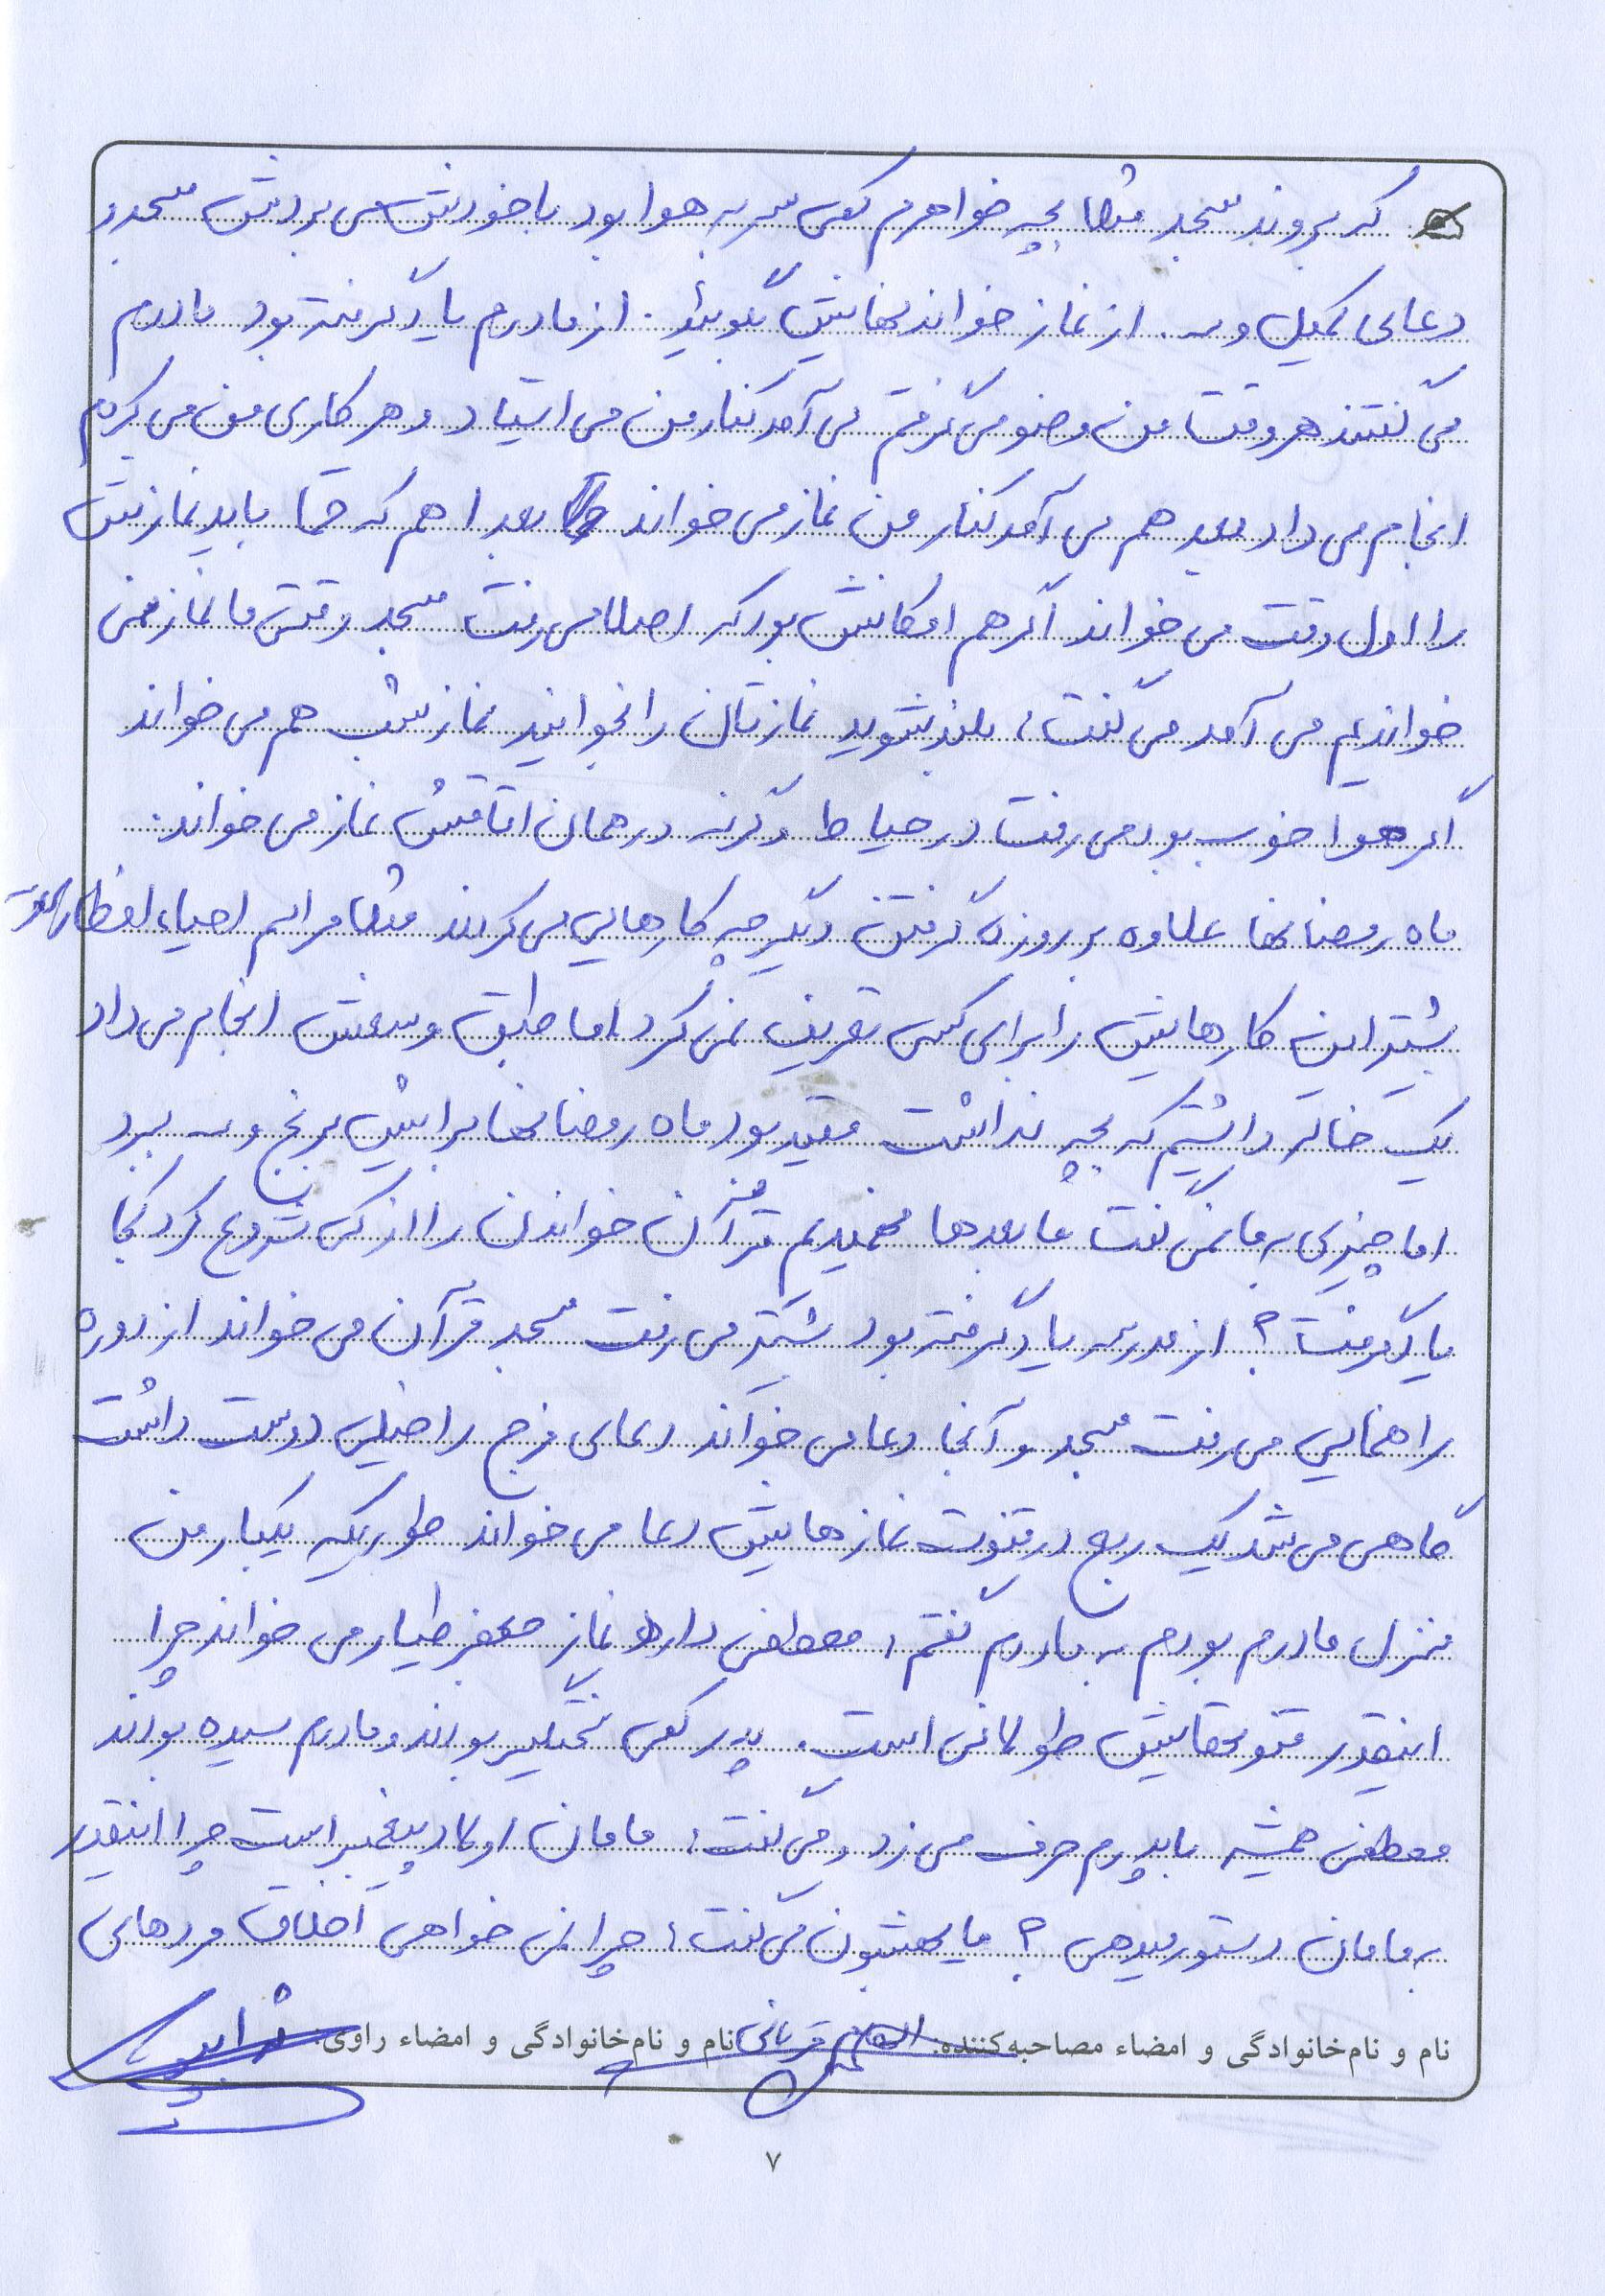 که بروند مسجد مثلا بچه خواهرم کمی سر به هوا بود با خودش می بردش مسجد و
دعای کمیل و ... از نماز خواندنهایش بگوئید. از مادرم یاد گرفته بود مادرم
می گفتند هر وقت من وضو می گرفتم می آمد کنار من می ایستاد و هر کاری من می کردم
انجام می داد بعد هم می آمد کنار من نماز می خواند بعدا هم که حتما باید نمازش
را اول وقت می خواند اگر هم امکانش بود که اصلا می رفت مسجد وقتی ما نماز نمی
خواندیم می آمد می گفت، بلند بشوید نمازتان را بخوانید نماز شب هم می خواند
اگر هوا خوب بود می رفت در حیاط وگرنه در همان اتاقش نماز می خواند.
ماه رمضانها علاوه بر روزه گرفتن دیگر چه کارهایی می کردند مثلا مراسم احیاء افطار
بیشتر این کارهایش را برای کسی تعریف نمی کرد اما طبق وسعش انجام می داد
یک خاله داشتیم که بچه نداشت مقید بود ماه رمضانها برایش برنج و ... ببرد
اما چیزی به ما نمی گفت ما بعدها فهمیدیم قرآن خواندن را از کی شروع کرد کجا
یاد گرفت؟ از مدرسه یاد گرفته بود بیشتر می رفت مسجد قرآن می خواند از دوره
راهنمایی می رفت مسجد و آنجا دعا می خواند دعای فرج را خیلی دوست داشت
گاهی می شد یک ربع در قنوت نمازهایش دعا می خواند طوریکه یکبار من
منزل مادرم بودم به مادرم گفتم، مصطفی دارد نماز جعفر طیار می خواند چرا
اینقدر قنوتهایش طولانی است. پدر کمی سختگیر بودند و مادرم سیده بودند
مصطفی همیشه با پدرم حرف می زد و می گفت: مامان اولاد پیغمبر است چرا اینقدر
به مامان دستور میدهی؟ ما بهشون می گفت: چرا نمی خواهی اخلاق مردهای
نام و نام‌خانوادگی و امضاء مصاحبه‌کننده: الهام قربانی نام و نام‌خانوادگی و امضاء راوی:
۷